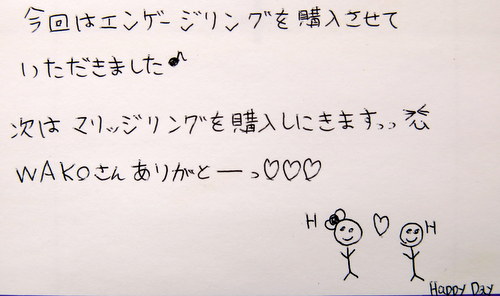 今回はエンゲージリングを購入させて
いただきました♪
次はマリッジリングを購入しにきますっっ
WAKOさんありがとーっ♡♡♡
H ♡ H
Happy Day